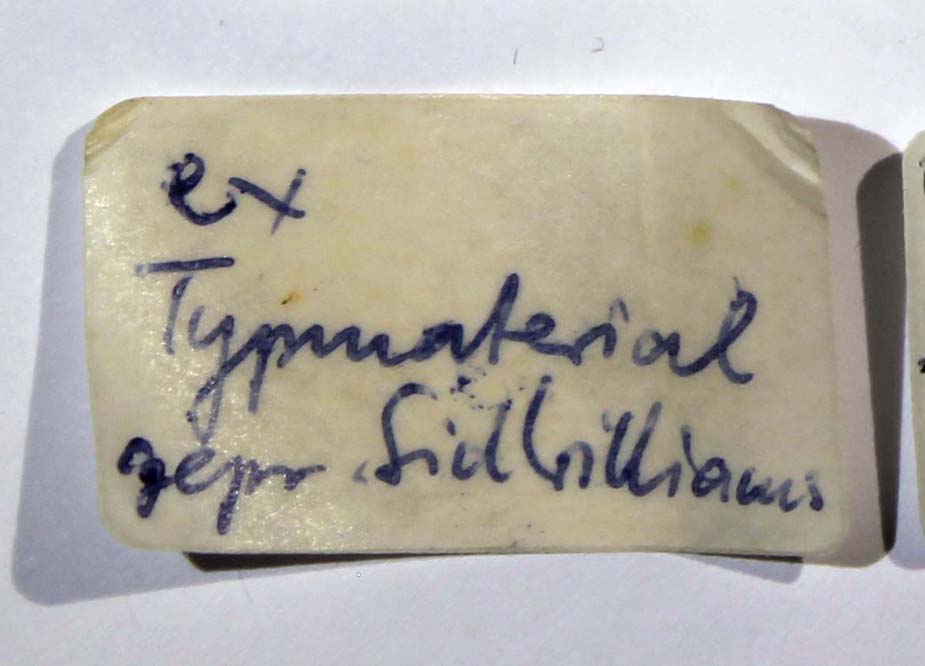 ex
Typmaterial
gepr. Sid Williams